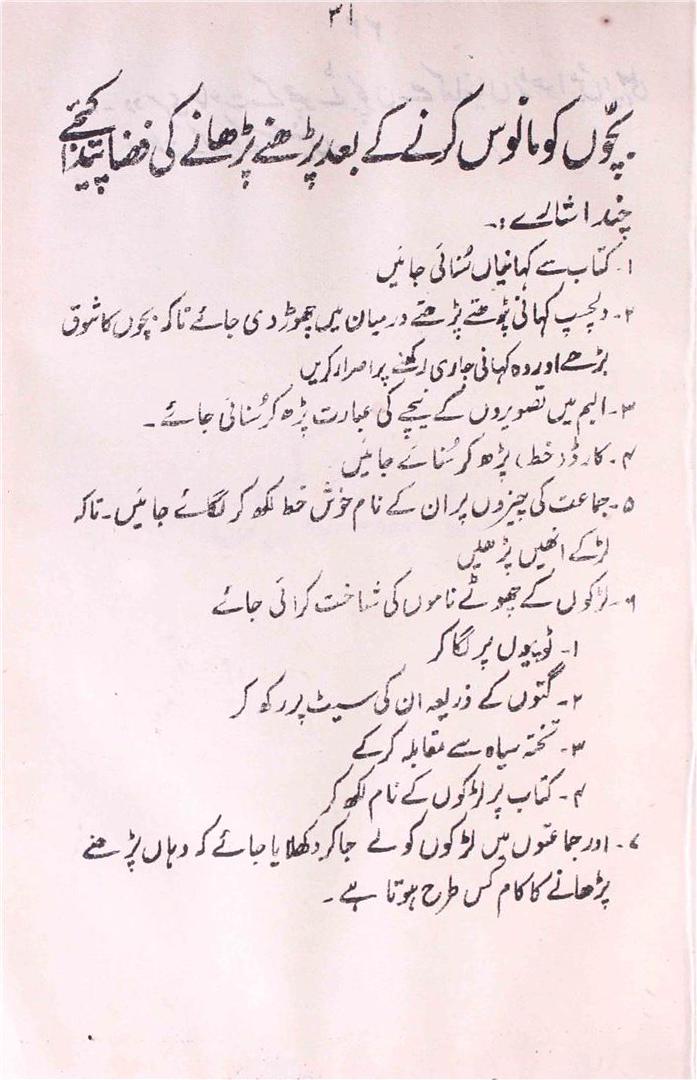 ۳۱
بچّوں کو مانوس کرنے کے بعد پڑھنے پڑھانے کی فضا پیدا کیجئے
چند اشارے :۔
۱۔ کتاب سے کہانیاں سُنائی جائیں
۲۔ دلچسپ کہانی پڑھتے پڑھتے درمیان میں چھوڑ دی جائے تاکہ بچوں کا شوق
بڑھے اور وہ کہانی جاری رکھنے پر اصرار کریں
۳۔ البم میں تصویروں کے نیچے کی عبارت پڑھ کر سُنائی جائے۔
۴۔ کارڈ (خط) پڑھ کر سُنائے جائیں
۵۔ جماعت کی چیزوں پر ان کے نام خوش خط لکھ کر لگائے جائیں۔ تاکہ
لڑکے انھیں پڑھیں
۶۔ لڑکوں کے چھوٹے ناموں کی شناخت کرائی جائے
۱۔ ٹوپیوں پر لگا کر
۲۔ گتوں کے ذریعہ ان کی سیٹ پر رکھ کر
۳۔ تختہ سیاہ سے مقابلہ کرکے
۴۔ کتاب پر لڑکوں کے نام لکھ کر
۷۔ اور جماعتوں میں لڑکوں کو لے جا کر دکھلایا جائے کہ وہاں پڑھنے
پڑھانے کا کام کس طرح ہوتا ہے۔